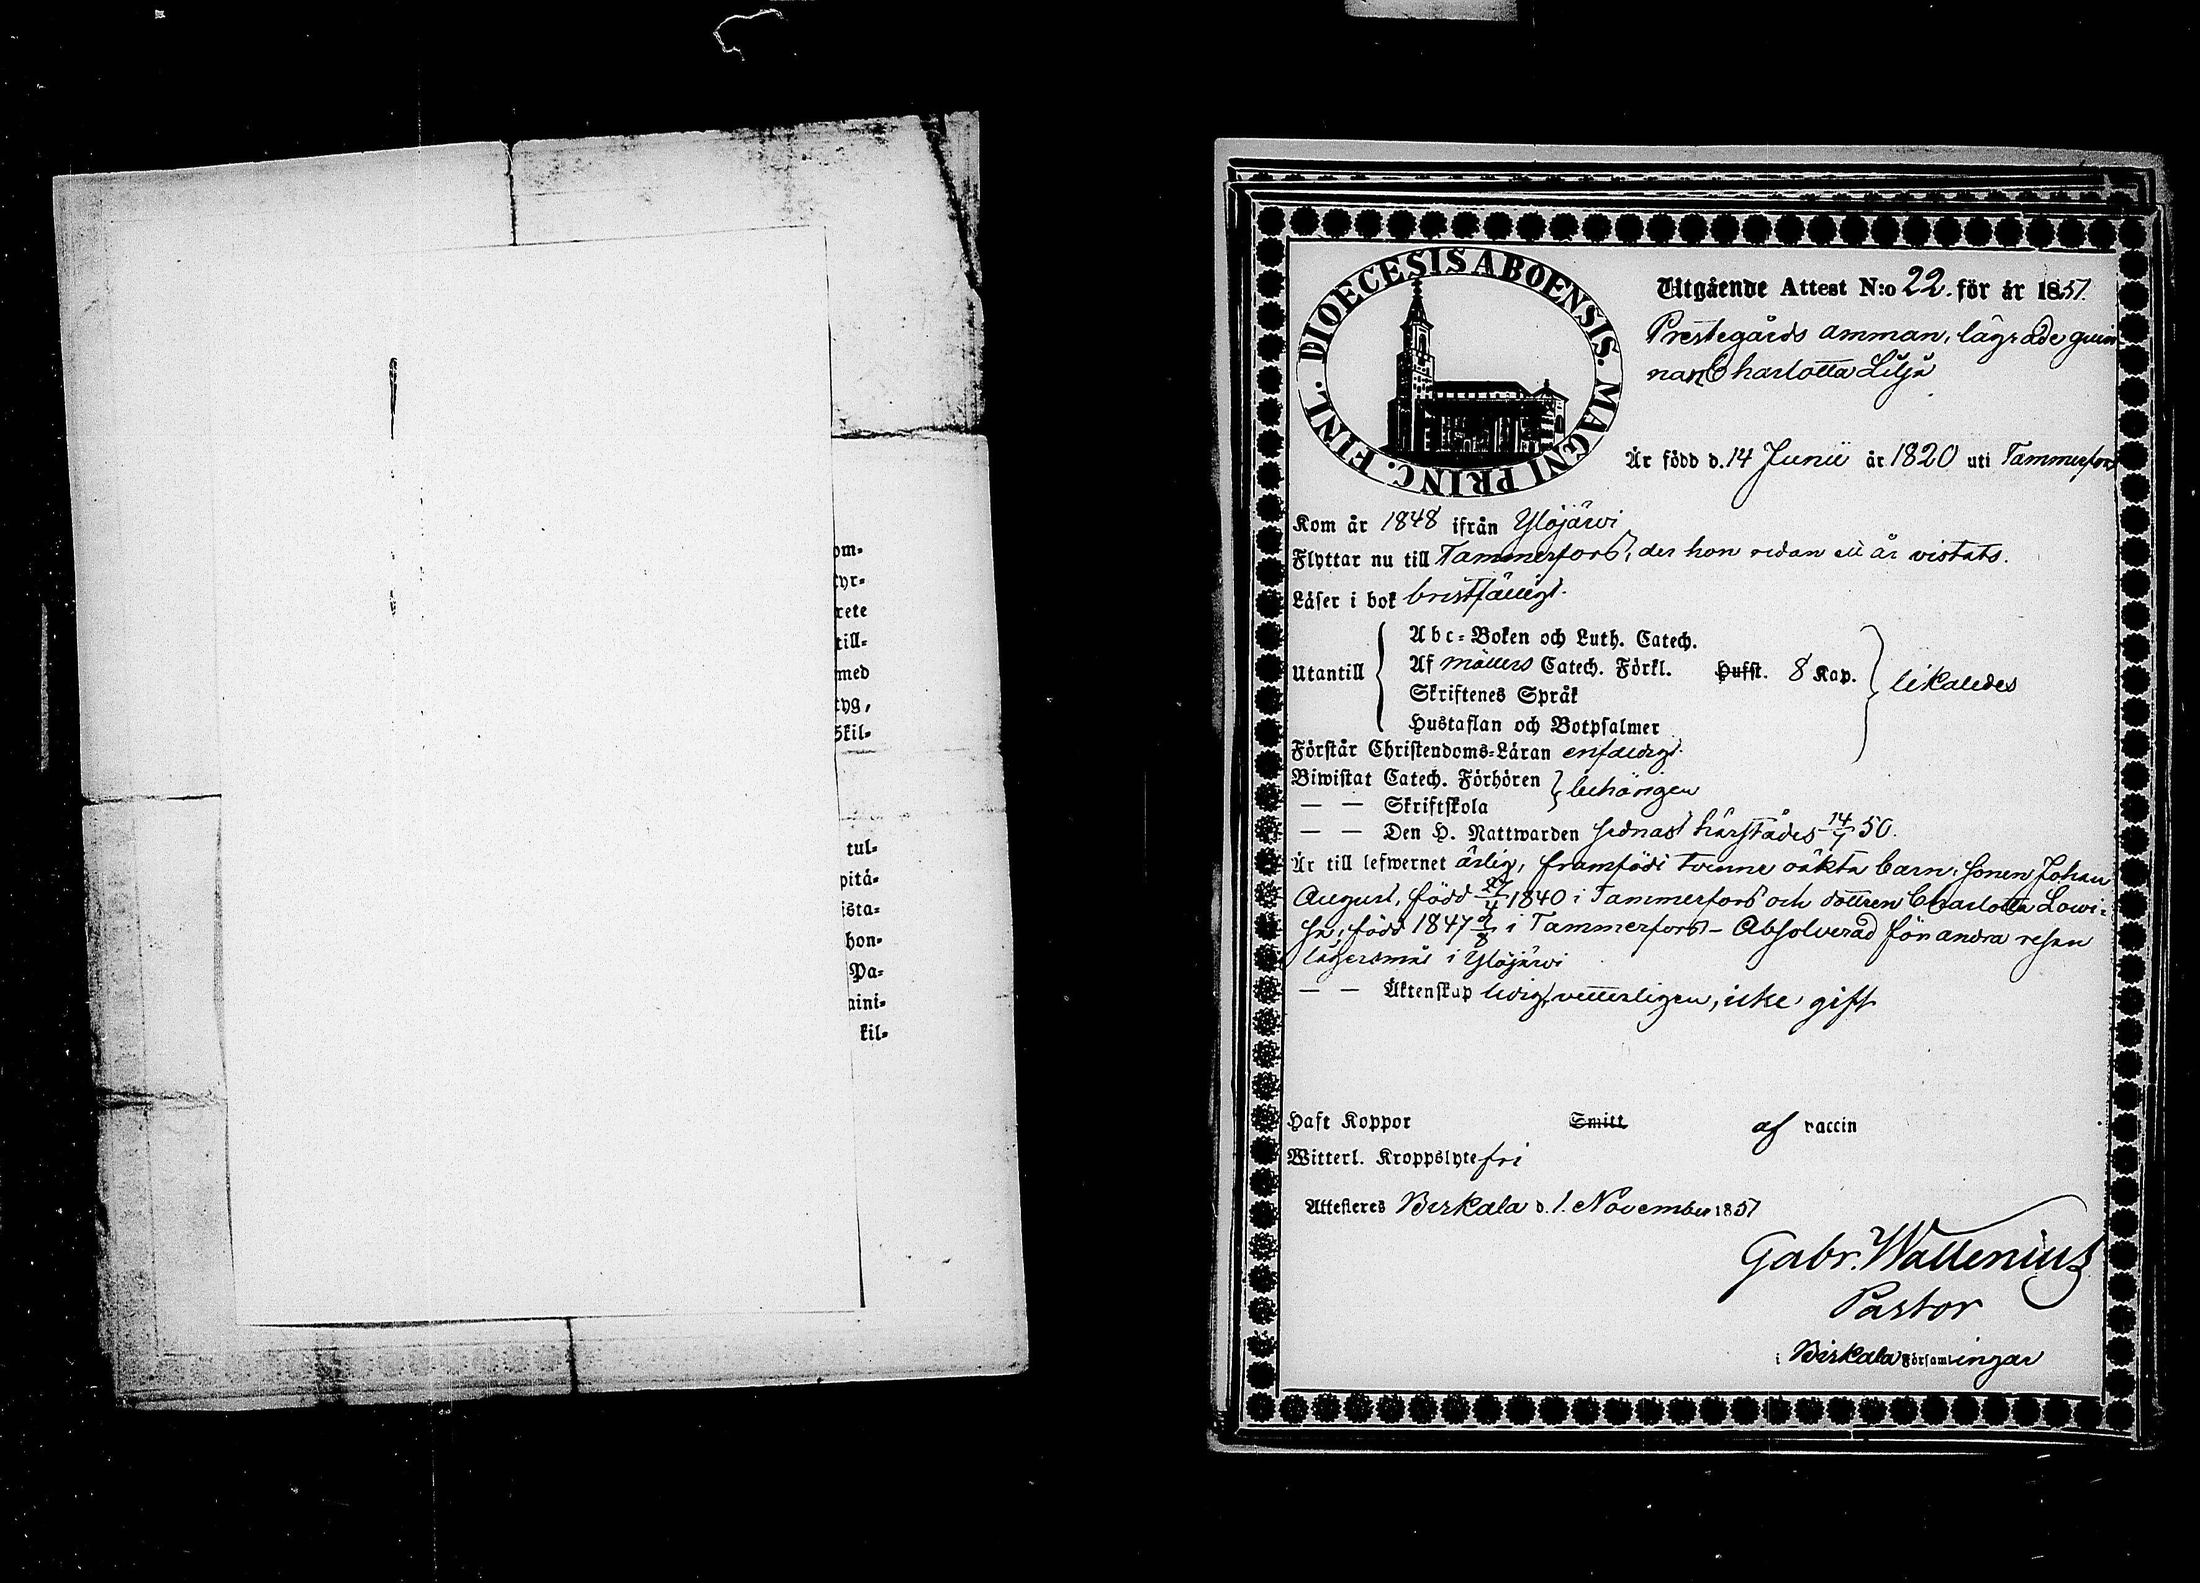 om-
tyr-
rete
till-
med
tyg,
Skil-
tul-
pitå-
ista-
hon-
Pa-
aini-
kil-
DIOECESIS ABOENSIS. MAGNI PRINC. FINL.
Utgående Attest N:o 22. för år 1851.
Prestegårds amman, lägrade quin
nan Charlotta Lilja
Är född d. 14 Junii år 1820 uti Tammerfors
Kom år 1848 ifrån Ylöjärvi
Flyttar nu till Tammerfors, der hon redan ett år vistats.
Läser i bok bristfälligt.
Utantill
Abc-Boken och Luth. Catech.
Af Möllers Catech. Förkl. Hufst. 8 Kap.
Skriftenes Språk
Hustaflan och Botpsalmer
likaledes
Förstår Christendoms-Läran enfaldigt.
Biwistat Catech. Förhören
— — Skriftskola
behörigen
— — Den H. Nattwarden sednast härstädes 14/7 50.
Är till lefwernet ärlig, framfödt tvenne oäkta barn, sonen Johan
August, född 27/4 1840 i Tammerfors och dottren Charlotta Lowi-
sa, född 1847 2/8 i Tammerfors - Absolverad för andra resan
lägersmål i Ylöjärvi
— — Äktenskap ledig, vetterligen, icke gift
Haft Koppor Smitt af vaccin
Witterl. Kroppslyte fri
Attesteres Birkala d. 1. November 1851
Gabr. Wallenius
Pastor
i Birkala Församlingar